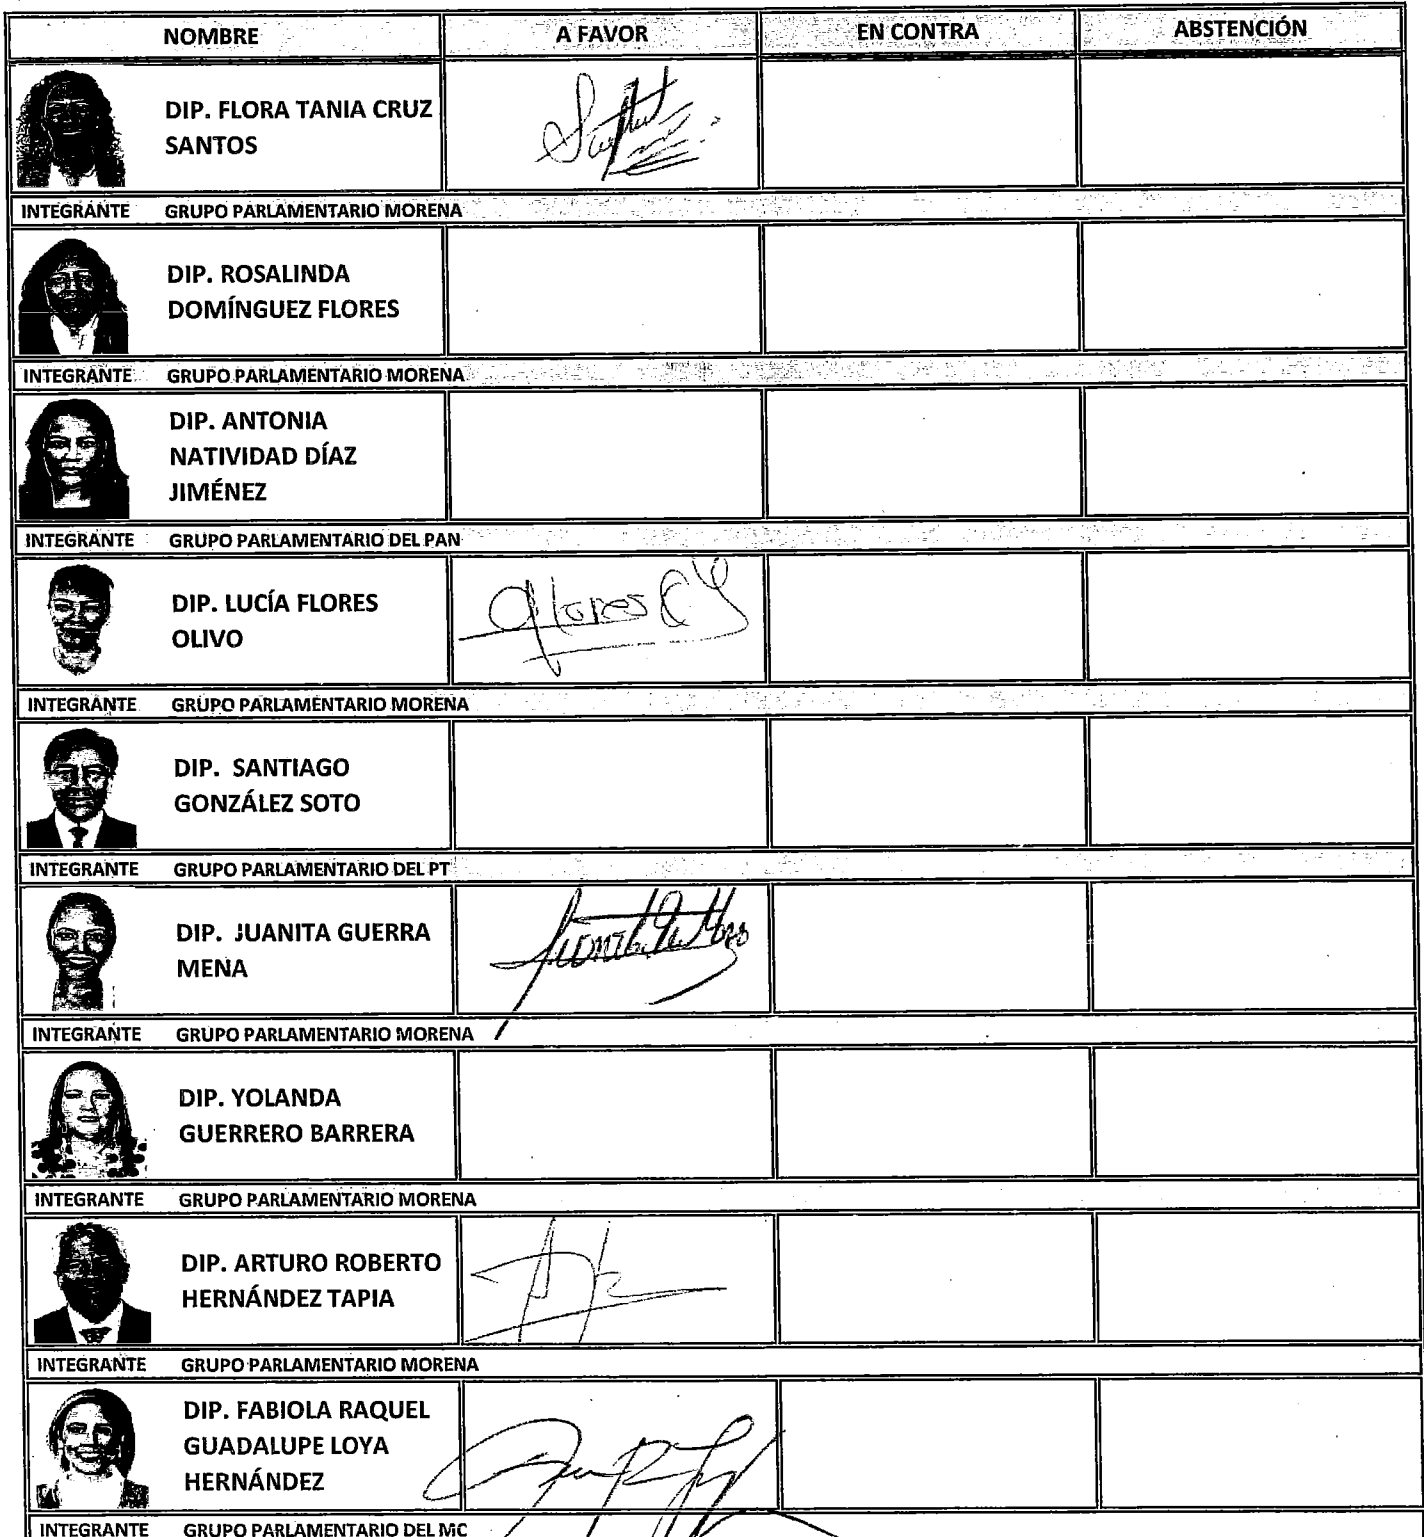 NOMBRE A FAVOR EN CONTRA ABSTENCIÓN
DIP. FLORA TANIA CRUZ
SANTOS
INTEGRANTE GRUPO PARLAMENTARIO MORENA
DIP. ROSALINDA
DOMÍNGUEZ FLORES
INTEGRANTE GRUPO PARLAMENTARIO MORENA
DIP. ANTONIA
NATIVIDAD DÍAZ
JIMÉNEZ
INTEGRANTE GRUPO PARLAMENTARIO DEL PAN
DIP. LUCÍA FLORES
OLIVO
INTEGRANTE GRUPO PARLAMENTARIO MORENA
DIP. SANTIAGO
GONZÁLEZ SOTO
INTEGRANTE GRUPO PARLAMENTARIO DEL PT
DIP. JUANITA GUERRA
MENA
INTEGRANTE GRUPO PARLAMENTARIO MORENA
DIP. YOLANDA
GUERRERO BARRERA
INTEGRANTE GRUPO PARLAMENTARIO MORENA
DIP. ARTURO ROBERTO
HERNÁNDEZ TAPIA
INTEGRANTE GRUPO PARLAMENTARIO MORENA
DIP. FABIOLA RAQUEL
GUADALUPE LOYA
HERNÁNDEZ
INTEGRANTE GRUPO PARLAMENTARIO DEL MC